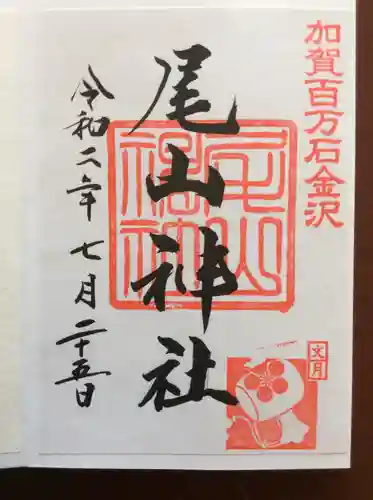 加賀百万石金沢
尾山神社
令和二年七月二十五日
文月
尾山神社